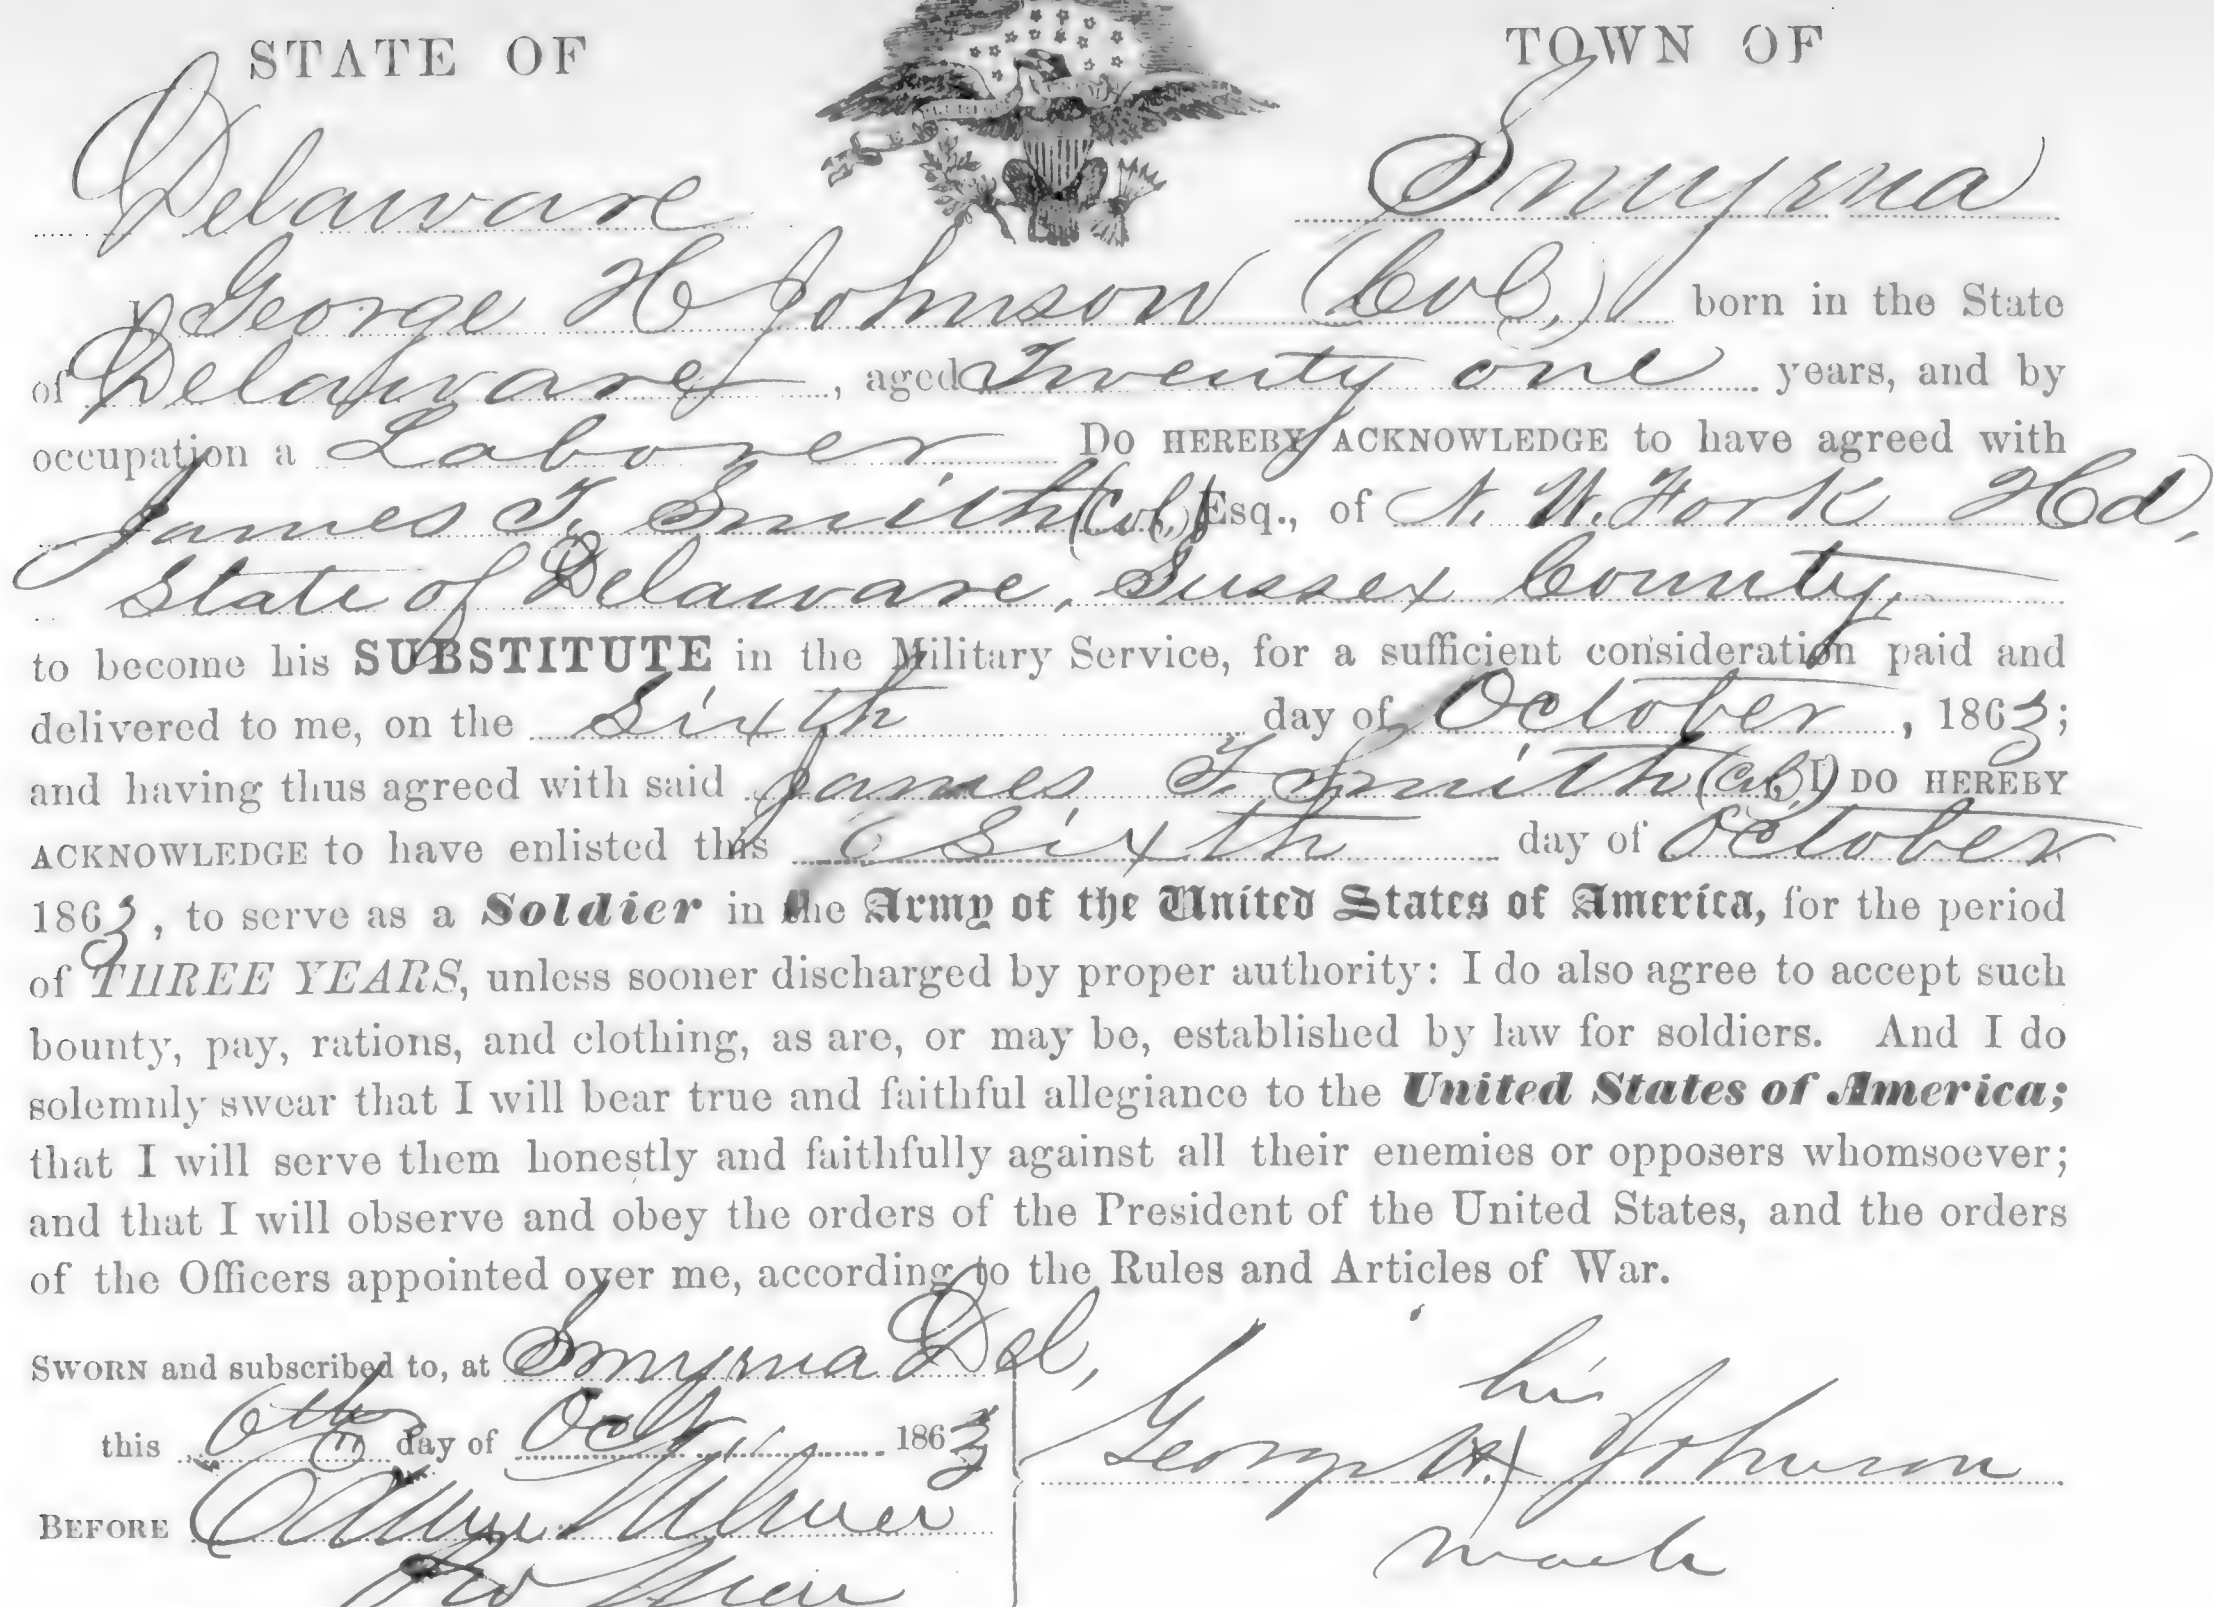 STATE OF
TOWN OF
Delaware
Smyrna
I, George H Johnson (Col,) born in the State
of Delaware, aged Twenty one years, and by
occupation a Laborer DO HEREBY ACKNOWLEDGE to have agreed with
James T. Smith (Col,) Esq., of N. W. Fork Hd,
State of Delaware, Sussex County,
to become his SUBSTITUTE in the Military Service, for a sufficient consideration paid and
delivered to me, on the Sixth day of October, 1863;
and having thus agreed with said James T. Smith (Col,) I DO HEREBY
ACKNOWLEDGE to have enlisted this Sixth day of October
1863, to serve as a Soldier in the Army of the United States of America, for the period
of THREE YEARS, unless sooner discharged by proper authority: I do also agree to accept such
bounty, pay, rations, and clothing, as are, or may be, established by law for soldiers. And I do
solemnly swear that I will bear true and faithful allegiance to the United States of America;
that I will serve them honestly and faithfully against all their enemies or opposers whomsoever;
and that I will observe and obey the orders of the President of the United States, and the orders
of the Officers appointed over me, according to the Rules and Articles of War.
SWORN and subscribed to, at Smyrna Del,
this 6th day of Oct 1863
BEFORE
his
George H. X Johnson
mark